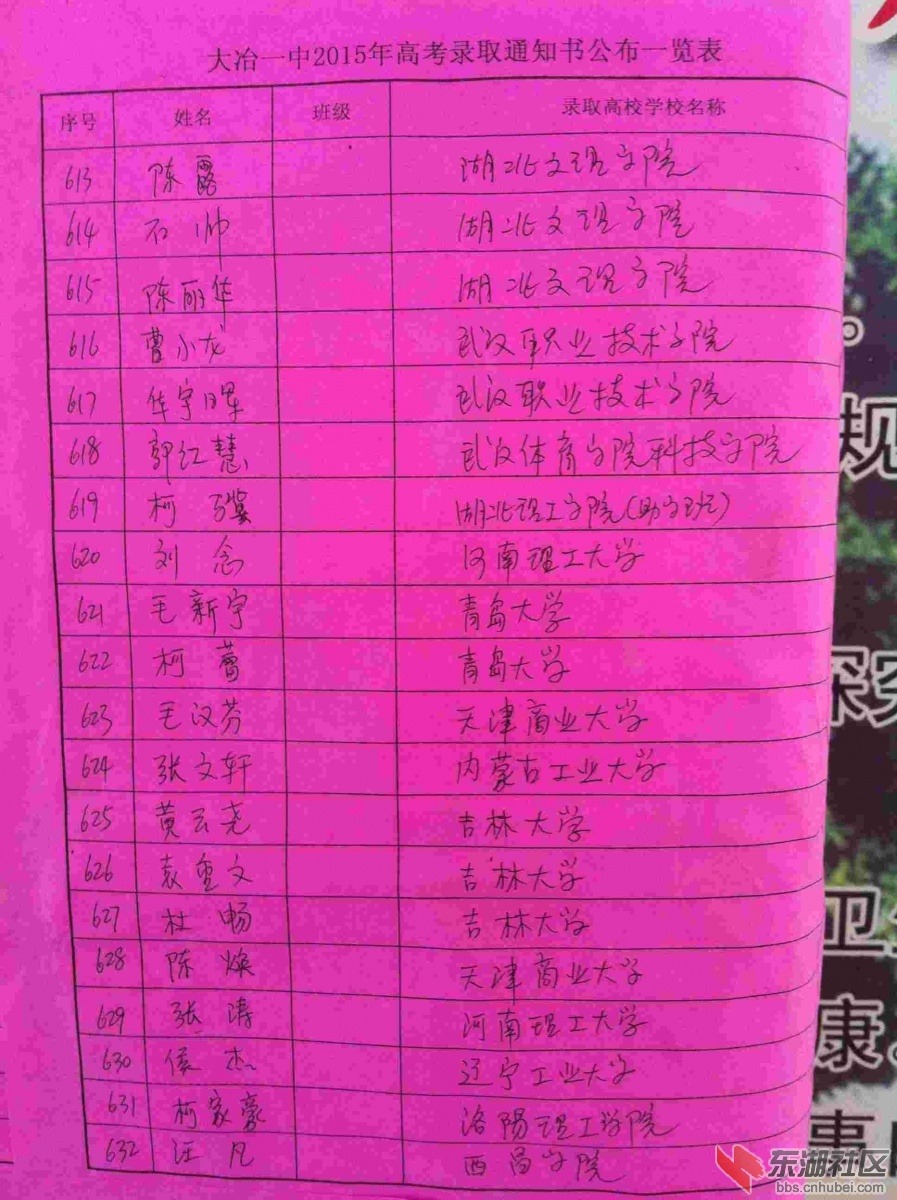 大冶一中2015年高考录取通知书公布一览表
序号 姓名 班级 录取高校学校名称
613 陈露 湖北文理学院
614 石帅 湖北文理学院
615 陈丽华 湖北文理学院
616 曹小龙 武汉职业技术学院
617 华宇晖 武汉职业技术学院
618 郭红慧 武汉体育学院科技学院
619 柯骥 湖北理工学院(助学班)
620 刘念 河南理工大学
621 毛新宇 青岛大学
622 柯蕾 青岛大学
623 毛汉芬 天津商业大学
624 张文轩 内蒙古工业大学
625 黄云尧 吉林大学
626 袁重文 吉林大学
627 杜畅 吉林大学
628 陈焕 天津商业大学
629 张涛 河南理工大学
630 侯杰 辽宁工业大学
631 柯家豪 洛阳理工学院
632 汪凡 西昌学院
规
探究
卫生
康
事
东湖社区
bbs.cnhubei.com